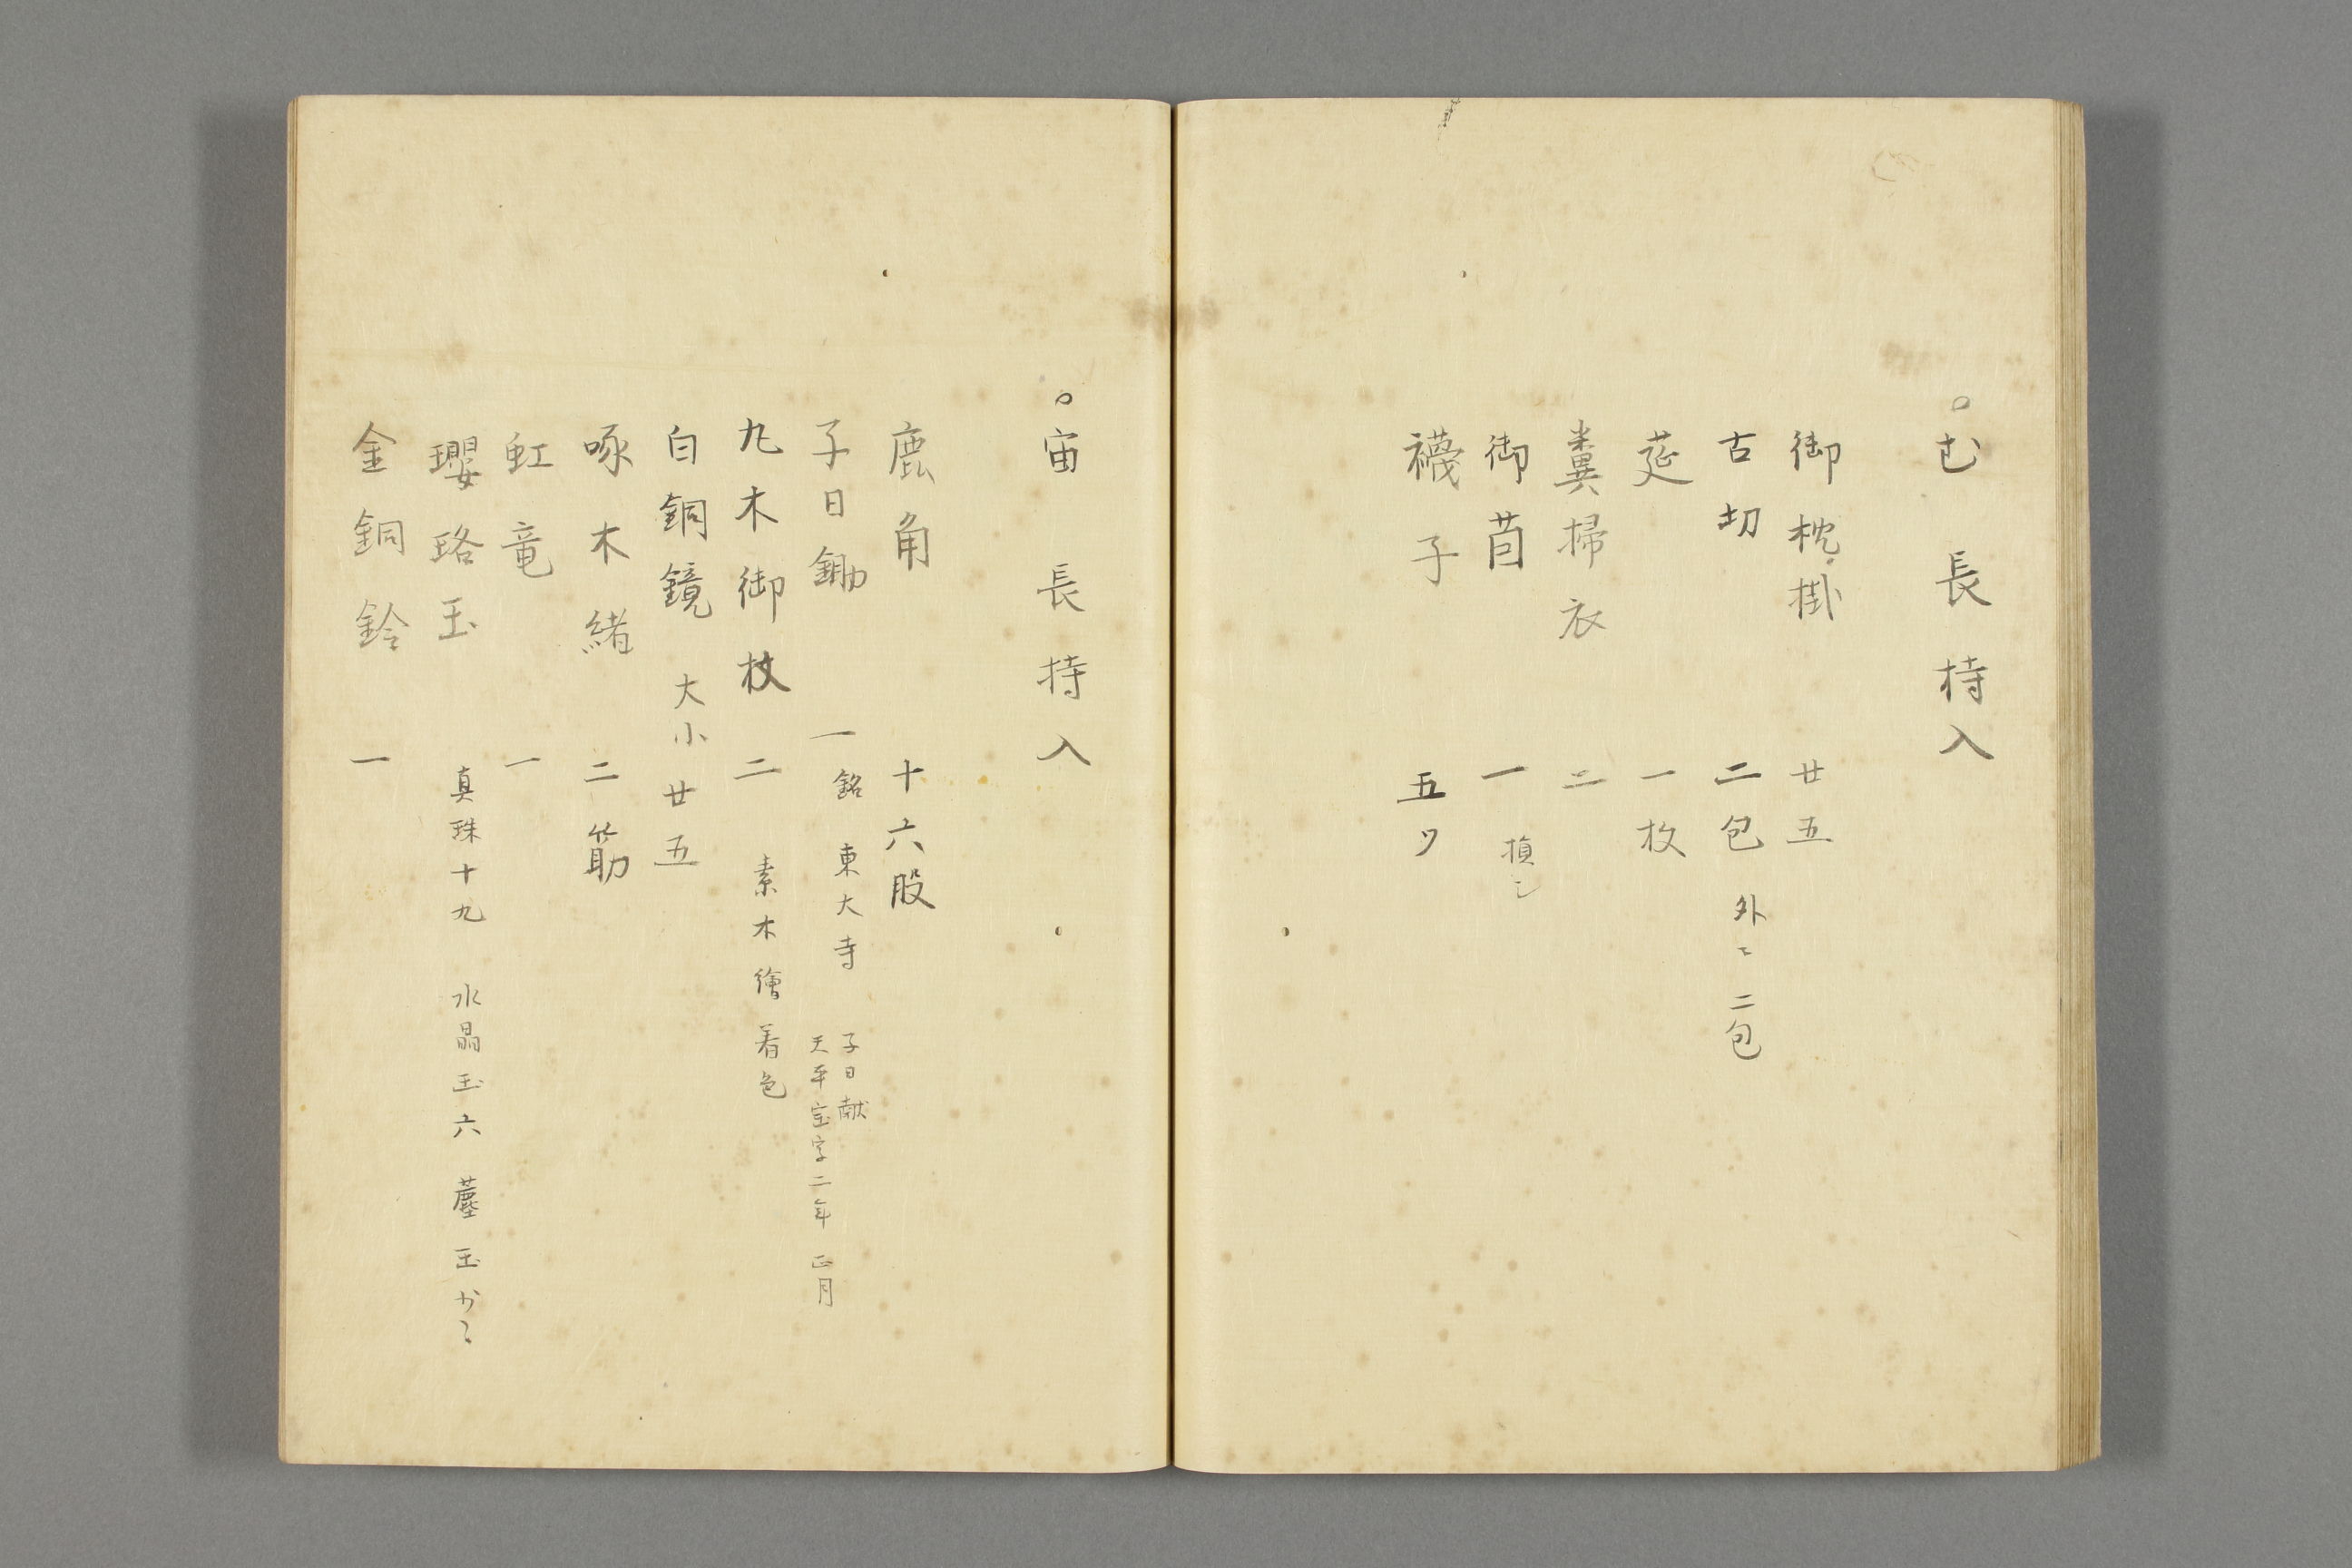 ○む長持入
御枕掛 廿五
古切 二包 外ニ二包
莚 一枚
糞掃衣 二
御苜 一 損シ
襪子 五ツ
○宙長持入
鹿角 十六股
子日鋤 一 銘 東大寺 子日献 天平宝字二年正月
九木御杖 二 素木繪着色
白銅鏡 大小 廿五
啄木緒 二筋
虹竜 一
瓔珞玉 真珠十九 水晶玉六 玉
金銅鈴 一